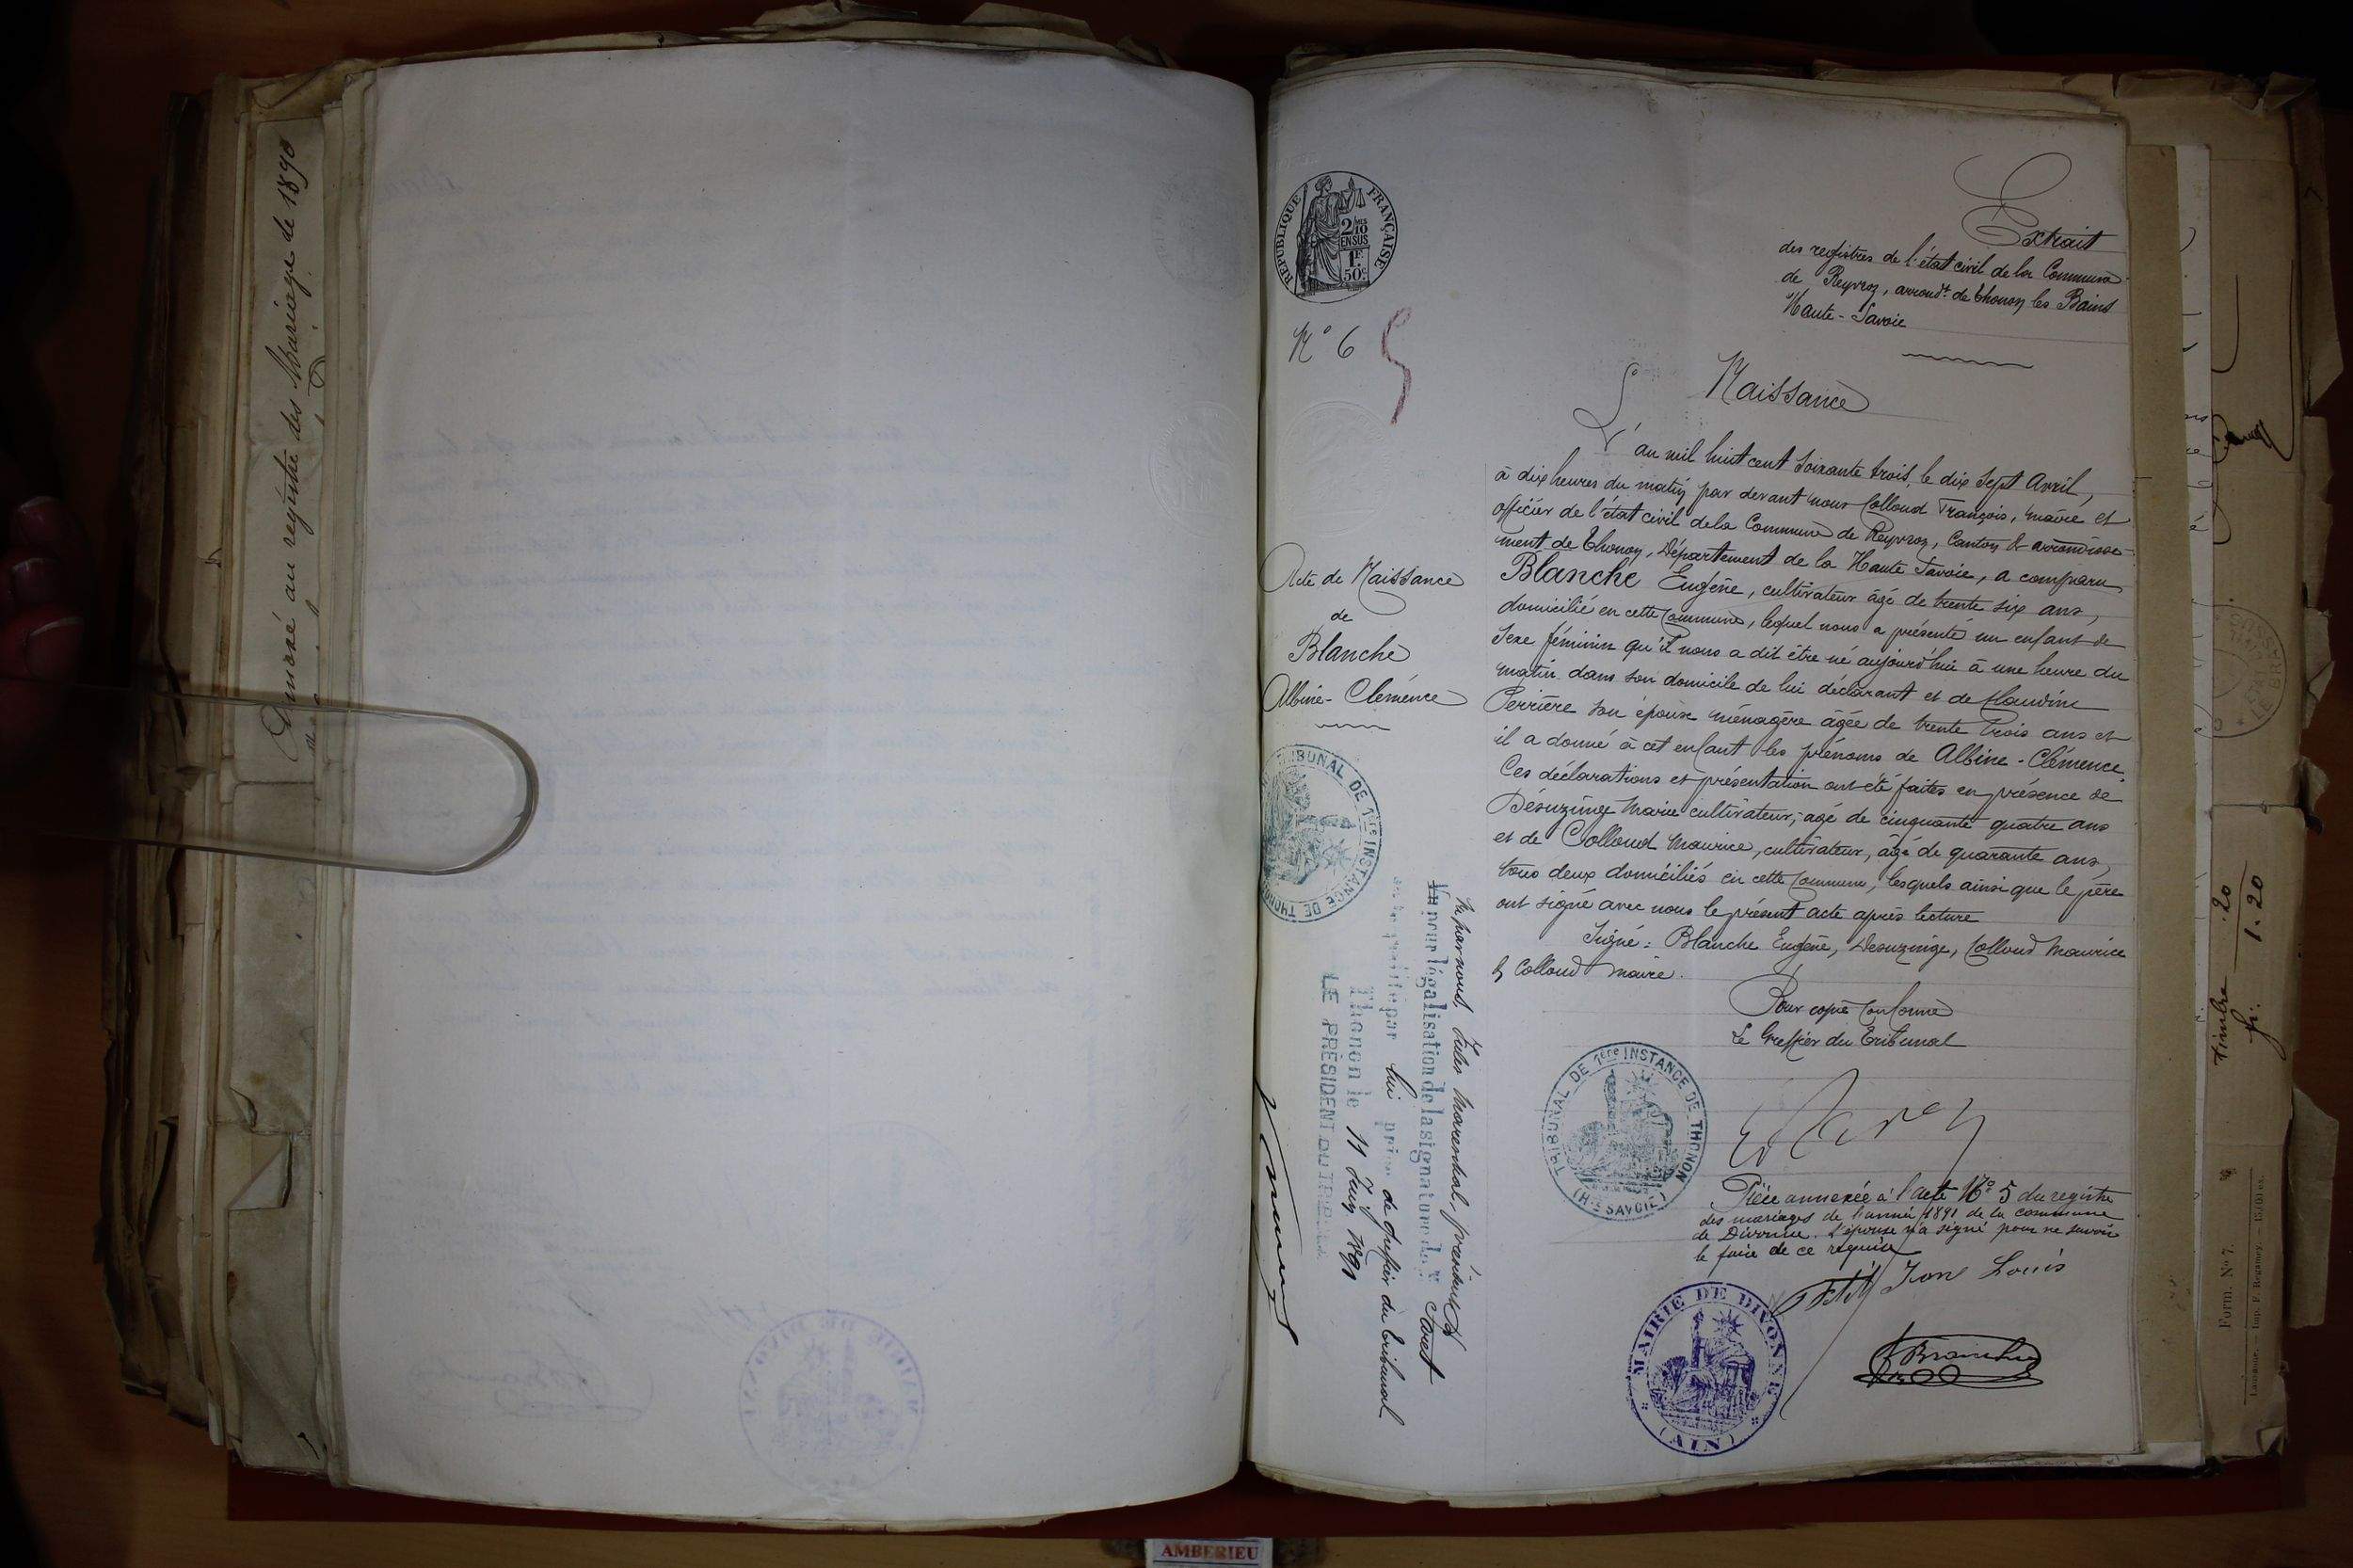 Annexé au registre des Mariage de 1890
REPUBLIQUE FRANÇAISE
2/10
EN SUS
1F
50c
N° 6
5
Extrait
des registres de l'état civil de la Commune
de Reyvroz, arrondt. de Thonon les Bains
Haute-Savoie
Naissance
L'an mil huit cent soixante trois, le dix sept Avril,
à dix heures du matin par devant nous Colloud François, maire et
officier de l'état civil de la Commune de Reyvroz, Canton & arrondisse-
ment de Thonon, Département de la Haute Savoie, a comparu
Blanche Eugène, cultivateur âgé de trente six ans,
domicilié en cette Commune, lequel nous a présenté un enfant de
sexe féminin qu'il nous a dit être né aujourd'hui à une heure du
matin dans son domicile de lui déclarant et de Claudine
Perrière son épouse ménagère âgée de trente trois ans et
il a donné à cet enfant les prénoms de Albine-Clémence.
Ces déclarations et présentation ont été faites en présence de
Désuzinge Marie cultivateur, âgé de cinquante quatre ans
et de Colloud Maurice, cultivateur, âgé de quarante ans,
tous deux domiciliés en cette Commune, lesquels ainsi que le père
ont signé avec nous le présent acte après lecture
Signé: Blanche Eugène, Desuzinge, Colloud Maurice
& Colloud maire.
Pour copie conforme
Le Greffier du Tribunal
Acte de Naissance
de
Blanche
Albine-Clémence
TRIBUNAL DE 1ère INSTANCE DE THONON
Vu par nous,
Vu pour légalisation de la signature de M. Favet
lui de Greffier du tribunal
Thonon le 11 Juin 1891
LE PRÉSIDENT DU TRIBUNAL
TRIBUNAL DE 1ère INSTANCE DE THONON
(Hte SAVOIE)
Pièce annexée à l'acte No 5 du registre
des mariages de l'année 1891 de la commune
de Divonne. L'épouse n'a signé pour ne savoir
le faire de ce requise
Louis
MAIRIE DE DIVONNE
(AIN)
Timbre .20
fr. 1.20
Form. N° 7.
AMBERIEU